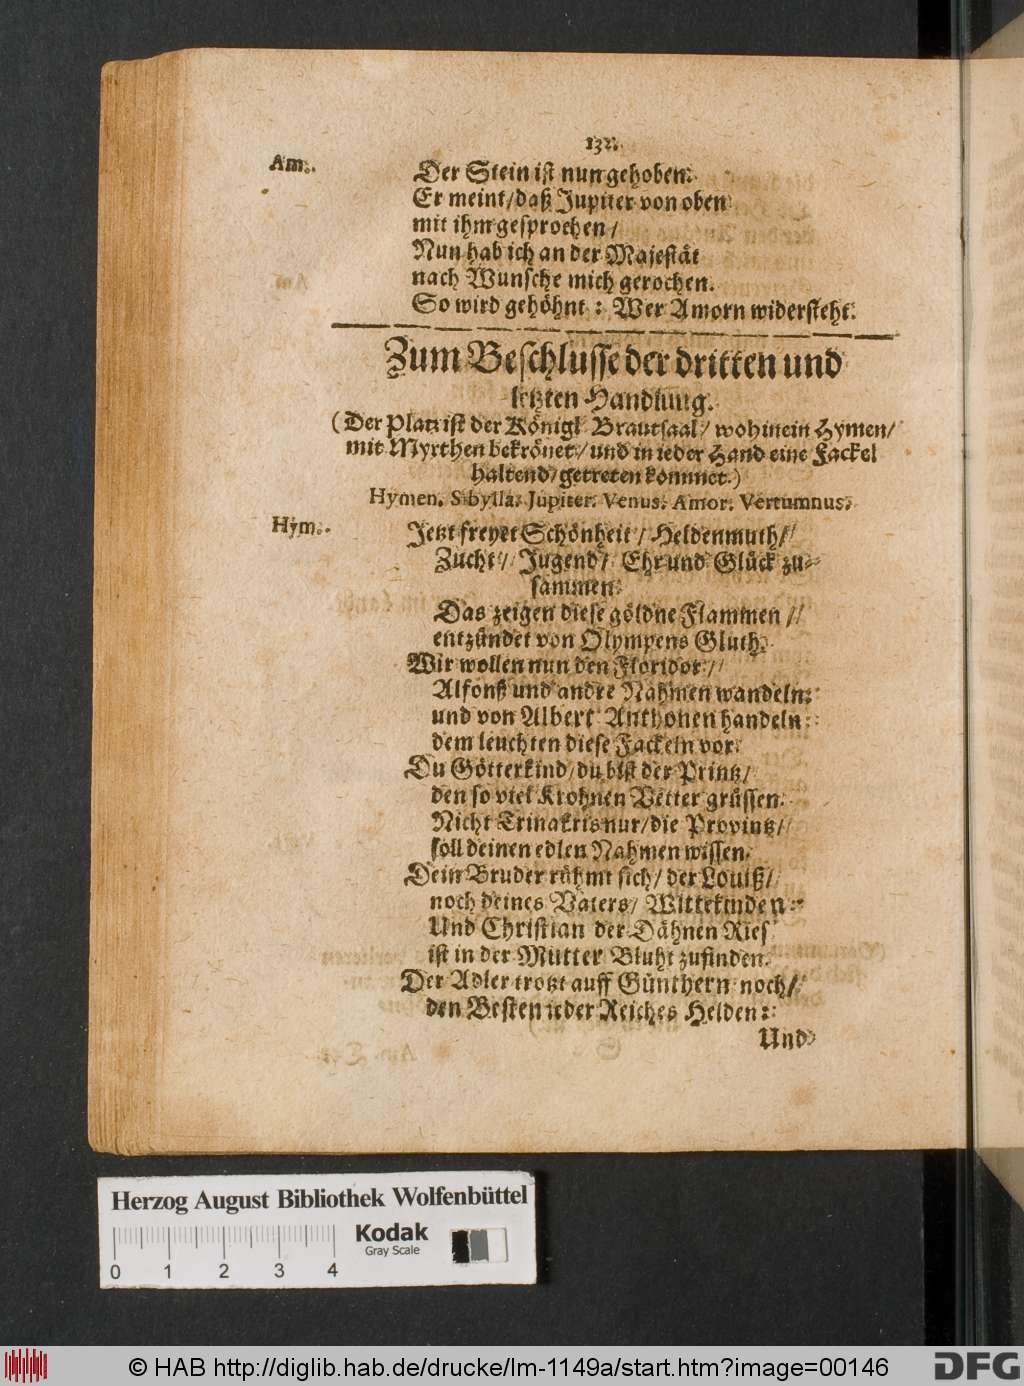 132.
Am. Der Stein ist nun gehoben:
Er meint/daß Jupiter von oben
mit ihm gesprochen/
Nun hab ich an der Majestät
nach Wunsche mich gerochen.
So wird gehöhnt: Wer Amorn widersteht.
Zum Beschlusse der dritten und
letzten Handlung.
(Der Platz ist der Königl Brautsaal/ wohinein Hymen/
mit Myrthen bekrönet/ und in ieder Hand eine Fackel
haltend/getreten kommet.)
Hymen. Sibylla. Jupiter. Venus. Amor. Vertumnus.
Hym. Jetzt freyet Schönheit/ Heldenmuth/
Zucht/ Jugend/ Ehr und Glück zu-
sammen:
Das zeigen diese göldne Flammen/
entzündet von Olympens Gluth.
Wir wollen nun den Floridor/
Alfonß und andre Nahmen wandeln:
und von Albert Anthonen handeln:
dem leuchten diese Fackeln vor.
Du Götterkind/du bist der Printz/
den so viel Krohnen Vetter grüssen.
Nicht Trinakris nur/die Provintz/
soll deinen edlen Nahmen wissen.
Dein Bruder rühmt sich/ der Louiß/
noch deines Vaters/ Wittekinden:
Und Christian der Dähnen Ries
ist in der Mutter Bluht zufinden.
Der Adler trotzt auff Günthern noch/
den Besten ieder Reiches Helden:
Und
Herzog August Bibliothek Wolfenbüttel
Kodak
Gray Scale
0 1 2 3 4
© HAB http://diglib.hab.de/drucke/lm-1149a/start.htm?image=00146
DFG